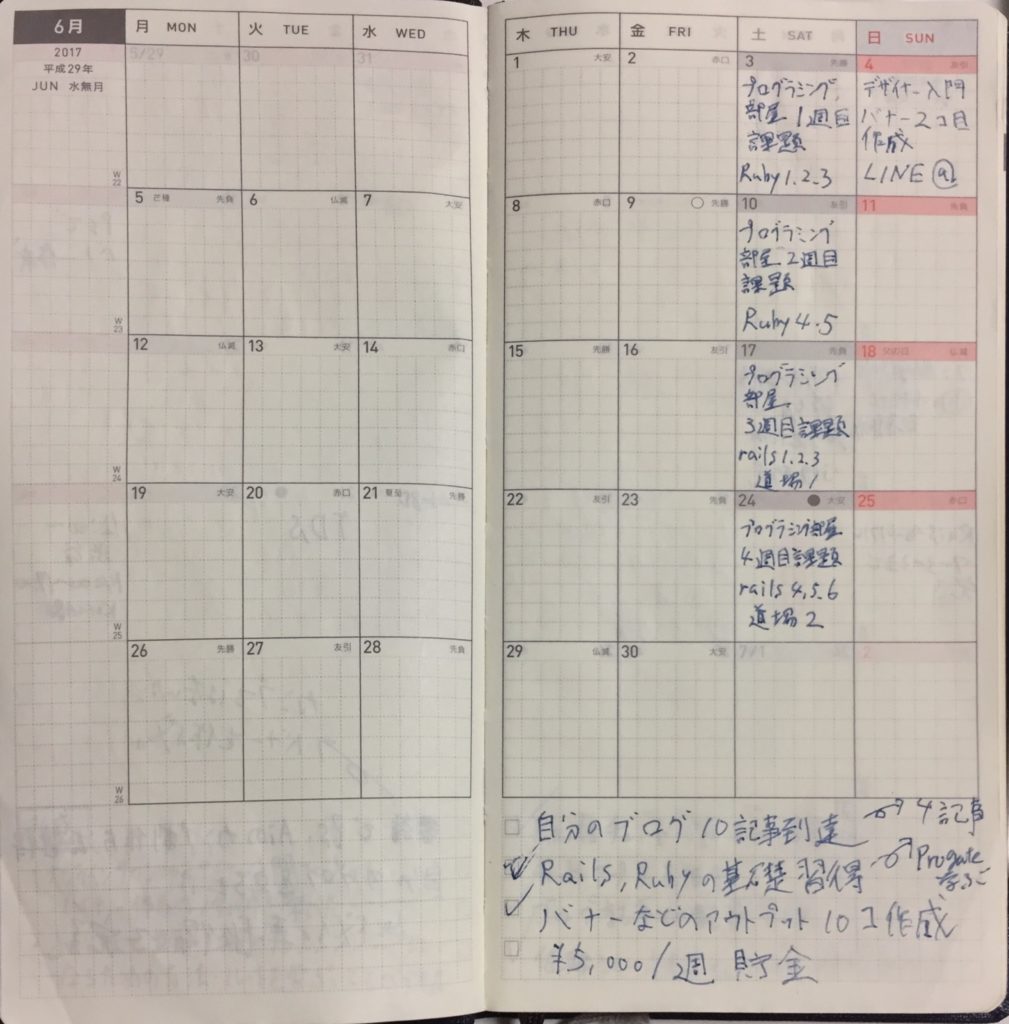 6月 月 MON 火 TUE 水 WED 木 THU 金 FRI 土 SAT 日 SUN
2017
平成29年
JUN 水無月
5/29 30 31 1 大安 2 赤口 3 先勝 4 友引
プログラミング
部屋 1週目
課題
Ruby 1.2.3
デザイナー入門
バナー2コ目
作成
LINE@
W
22
5 芒種 先負 6 仏滅 7 大安 8 赤口 9 先勝 10 友引 11 先負
プログラミング
部屋 2週目
課題
Ruby 4.5
W
23
12 仏滅 13 大安 14 赤口 15 先勝 16 友引 17 先負 18 父の日 仏滅
プログラミング
部屋
3週目課題
rails 1.2.3
道場1
W
24
19 大安 20 赤口 21 夏至 先勝 22 友引 23 先負 24 大安 25 赤口
プログラミング部屋
4週目課題
rails 4,5.6
道場2
W
25
26 先勝 27 友引 28 先負 29 仏滅 30 大安 7/1 2
W
26
自分のブログ10記事到達 4記事
Rails, Rubyの基礎習得 Progate
バナーなどのアウトプット10コ作成
¥5,000/週 貯金